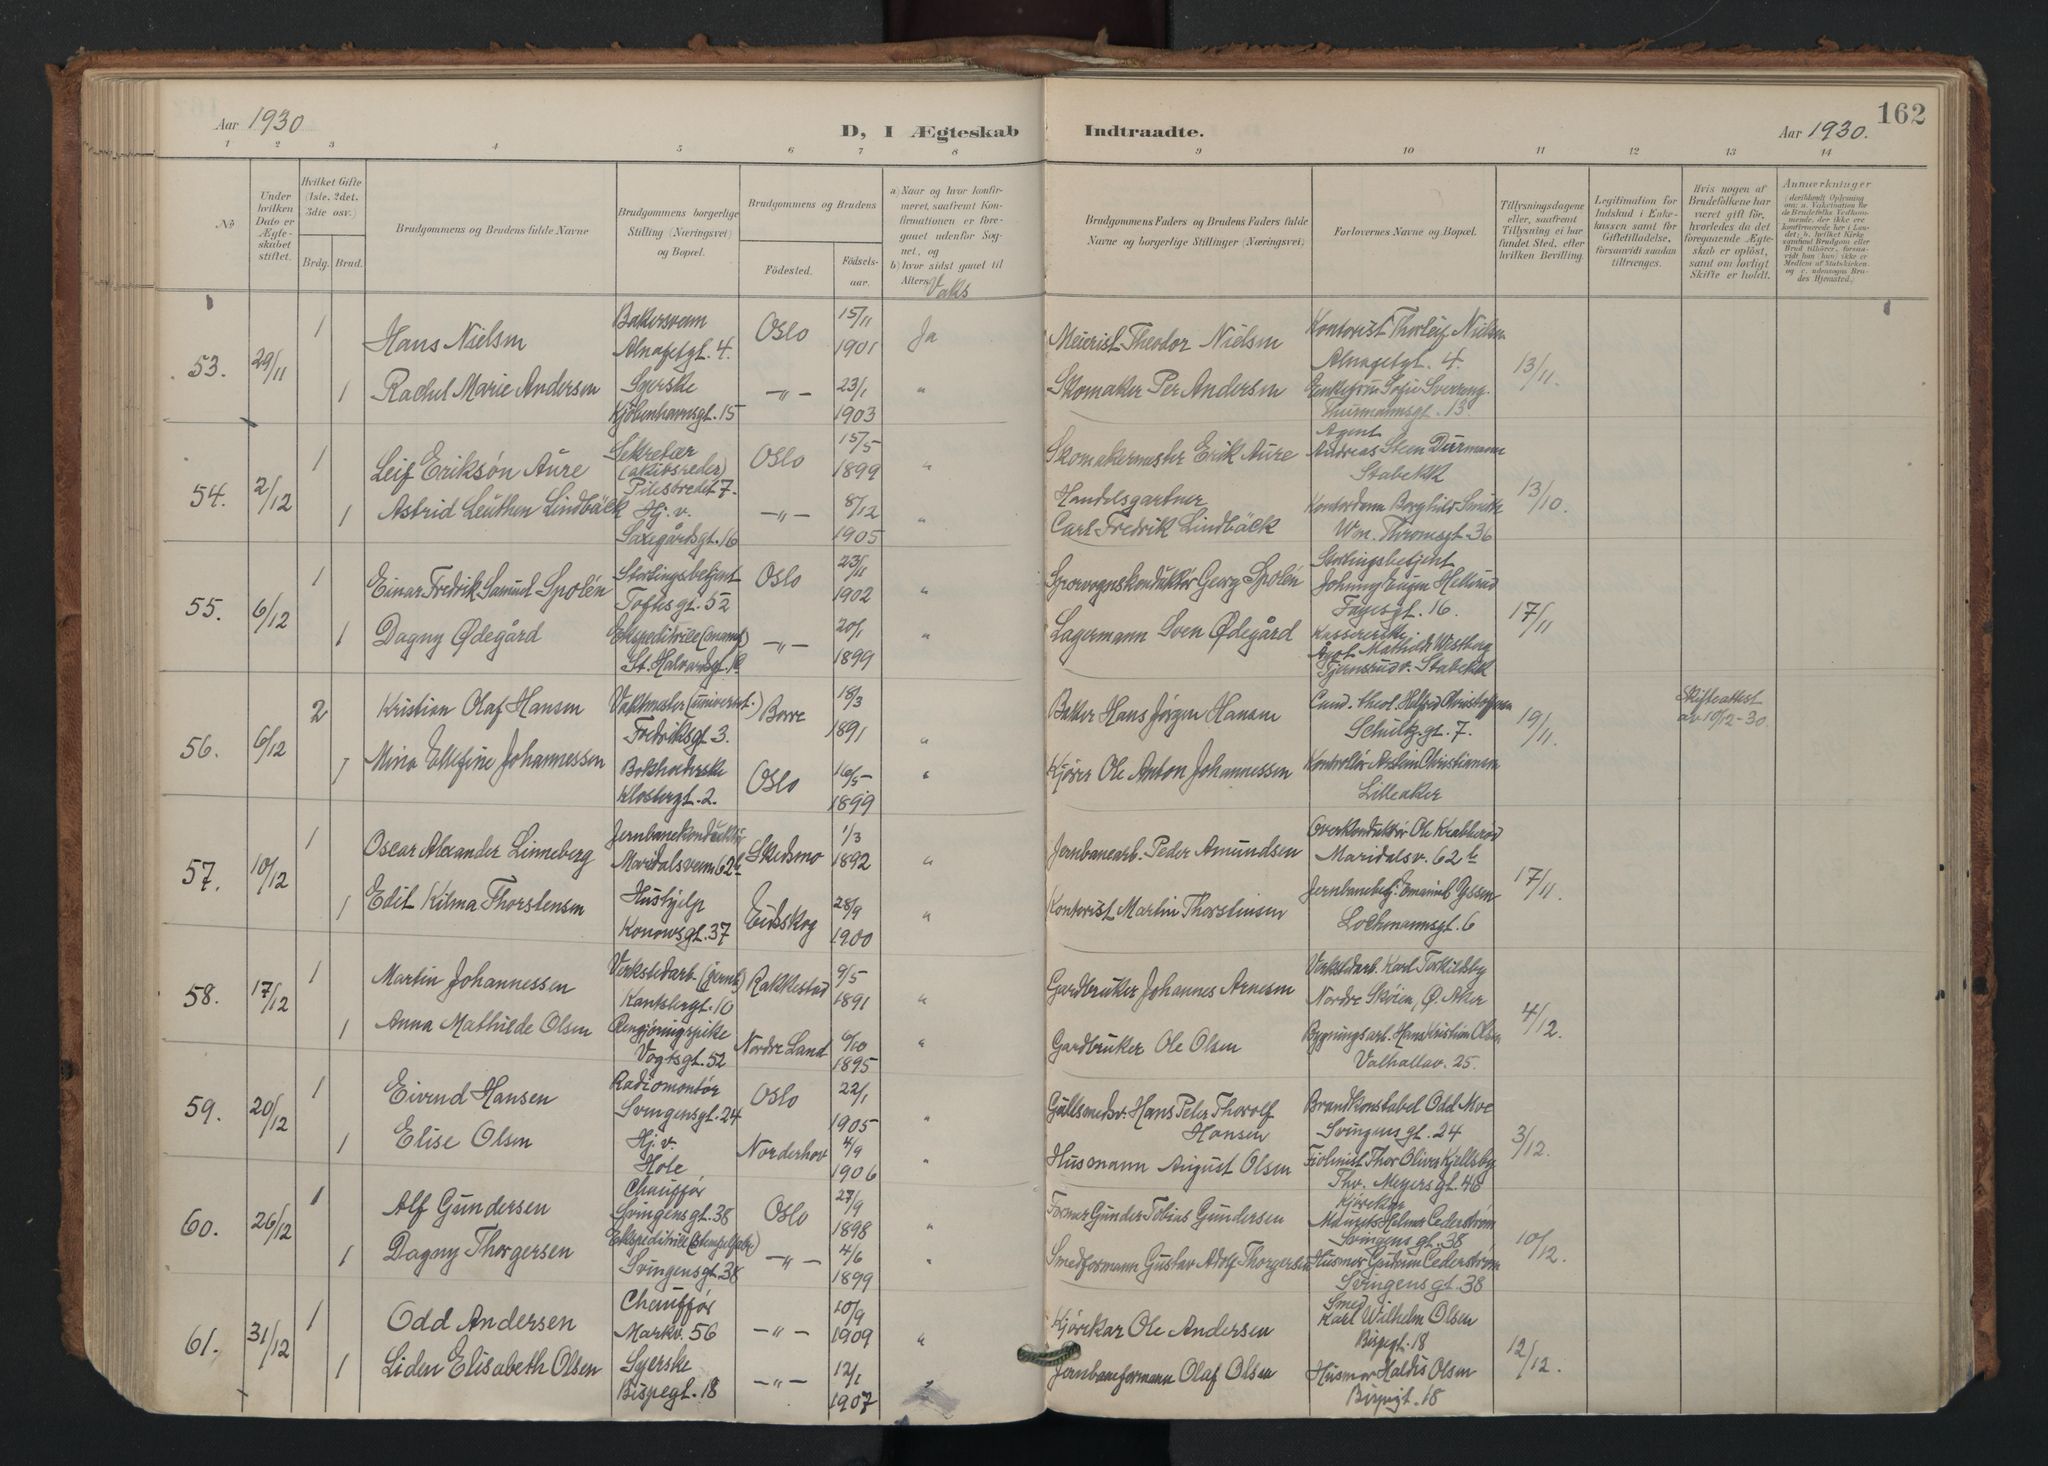 162
Aar 1930
D, I Ægteskab
Indtraadte.
Aar 1930.
1 2 3 4 5 6 7 8 9 10 11 12 13 14
No
Under hvilken Dato er Ægteskabet stiftet.
Hvilket Gifte (1ste, 2det, 3die osv.)
Brdg. Brud.
Brudgommens og Brudens fulde Navne
Brudgommens borgerlige Stilling (Næringsvei) og Bopæl.
Brudgommens og Brudens
Fødested.
Fødselsaar.
a) Naar og hvor konfirmeret, saafremt Konfirmationen er foregaaet udenfor Sognet, og
b) hvor sidst gaaet til Alters.
Vaks
Brudgommens Faders og Brudens Faders fulde Navne og borgerlige Stillinger (Næringsvei)
Forlovernes Navne og Bopæl.
Tillysningsdagene eller, saafremt Tillysning ei har fundet Sted, efter hvilken Bevilling.
Legitimation for Indskud i Enkekassen samt for Giftetilladelse, forsaavidt saadan tiltrænges.
Hvis nogen af Brudefolkene har været gift før, hvorledes da det foregaaende Ægteskab er opløst, samt om lovligt Skifte er holdt.
Anmerkninger
53. 29/11
1 Hans Nielsen
Bakersvenn
Alnafetgt. 4.
Oslo 15/11 1901 Ja
Meierist Theodor Nielsen
Kontorist Thorleif Nielsen
Alnafetgt. 4.
13/11.
1 Rachel Marie Andersen
Syerske
Kjøbenhavnsgt. 15
—"— 23/1 1903 "
Skomaker Per Andersen
Enkefru Sofie
Thurmannsgt. 13
54. 2/12
1 Leif Eriksøn Aure
Sekretær
Pilestredet 7.
Oslo 15/5 1899 "
Skomakermester Erik Aure
Agent
Andreas Steen Durmann
Stabekk
13/10.
1 Astrid Leuthen Lindbäck
Hj. v.
Saxegårdsgt. 16
—"— 8/12 1905 "
Handelsgartner
Carl Fredrik Lindbäck
Kontordame Borghild Smith
Wm. Thranesgt. 36
55. 6/12
1 Einar Fredrik Samuel Spolén
Stortingsbetjent
Toftesgt. 52
Oslo 23/11 1902 "
Sporvognskonduktør Georg Spolén
Stortingsbetjent
Johnny Eugen Hellerud
Fagesgt. 16.
17/11
1 Dagny Ødegård
St. Halvardsgt. 12
—"— 20/1 1899 "
Lagermann Sven Ødegård
Kassererske
Agot Mathilde Westberg
Gjernesrudv. Stabekk
56. 6/12
2 Kristian Olaf Hansen
Vaktmester (universit.)
Fredriksgt. 3.
Borre 18/3 1891 "
Baker Hans Jørgen Hansen
Cand. theol. Helfred Christoffersen
Schultzgt. 7.
19/11.
Skifteattest
av 10/12-30
1 Mina Ellefine Johannessen
Bokholderske
Klostergt. 2.
Oslo 16/5 1899 "
Kjører Ole Anton Johannessen
Kontrollør Christiansen
Lilleaker
57. 10/12
1 Oscar Alexander Linneberg
Jernbanekonduktør
Maridalsveien 62b
Skedsmo 1/3 1892 "
Jernbanearb. Peder Amundsen
Overkonduktør Ole Krabberød
Maridalsv. 62b
17/11.
1 Edit Kilma Thorstensen
Hushjelp
Konowsgt. 37
Eidskog 28/9 1900 "
Kontorist Martin Thorstensen
Jernbanebetj. Emanuel Yssen
Lochmannsgt. 6
58. 17/12
1 Martin Johannessen
Verkstedarb. (jernb.)
Kantsbergt. 10
Rakkestad 9/5 1891 "
Gardbruker Johannes Arnesen
Verkstedarb. Karl Torkildsby
Nordre Skøien, Ø. Aker
4/12.
1 Anna Mathilde Olsen
Rengjøringspike
Vogtsgt. 52
Nordre Land 6/10 1895 "
Gardbruker Ole Olsen
Bygningsarb. Hans Kristian Olsen
Valhallav. 25.
59. 20/12
1 Eivind Hansen
Radiomontør
Svingensgt. 24
Oslo 22/1 1905 "
Gullsmedsv. Hans Peter Thorolf
Hansen
Brandkonstabel Odd Moe
Svingensgt. 24
3/12.
1 Elise Olsen
Hj. v
Hole
Norderhov 4/9 1906 "
Husmann August Olsen
Fiolinist Thor Oliver Kjellsby
Thv. Meyersgt. 46
60. 26/12
1 Alf Gundersen
Chauffør
Svingensgt. 38
Oslo 27/9 1898 "
Former Gunder Tobias Gundersen
Kjørekar
Mauritz Helmer Cederstrøm
Svingensgt. 38
10/12.
1 Dagny Thorgersen
Ekspeditrice (stempelfabr.)
Svingensgt. 38
—"— 4/6 1899 "
Smedformann Gustav Adolf Thorgersen
Husmor Gudrun Cederstrøm
Svingensgt. 38
61. 31/12
1 Odd Andersen
Chauffør
Markv. 56
—"— 10/9 1909 "
Kjørekar Ole Andersen
Smed
Karl Wilhelm Olsen
Bispegt. 18
12/12.
1 Liden Elisabeth Olsen
Syerske
Bispegt. 18
—"— 12/1 1907
Jernbaneformann Olaf Olsen
Husmor Haldis Olsen
Bispegt. 18